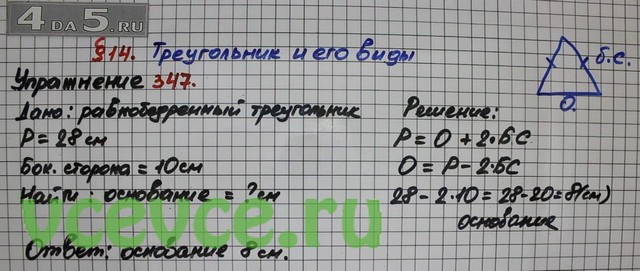 4 DA 5.RU
§14. Треугольник и его виды
Упражнение 347.
Дано: равнобедренный треугольник
P = 28 см
Бок. сторона = 10 см
Найти: основание = ? см
б.с.
О.
Решение:
P = O + 2·БС
O = P - 2·БС
28 - 2·10 = 28-20 = 8(см)
основание
vcevce.ru
Ответ: основание 8 см.